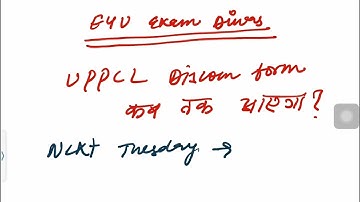 E4U Exam Divas
UPPCL Discom form
कब तक आएगा?
Next Tuesday →